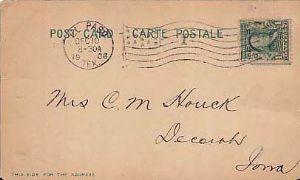 POST CARD - CARTE POSTALE
PASO
DEC 10
8-30A
1906
TEX.
1
Mrs C M Houck
Decorah
Iowa
THIS SIDE FOR THE ADDRESS